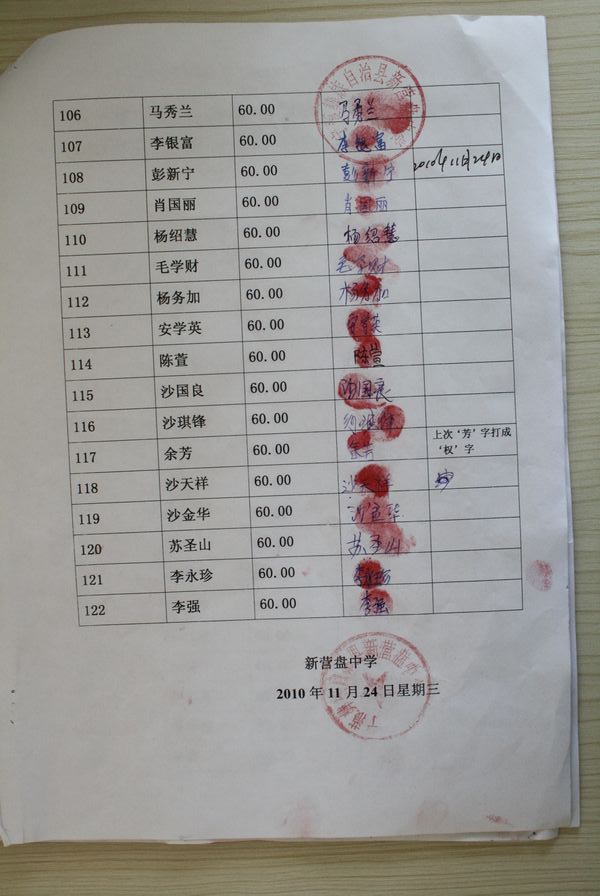 自治县新营盘
106 马秀兰 60.00 马秀兰
107 李银富 60.00 李银富
108 彭新宁 60.00 彭新宁 2010年11月24日
109 肖国丽 60.00 肖国丽
110 杨绍慧 60.00 杨绍慧
111 毛学财 60.00 毛学财
112 杨务加 60.00 杨务加
113 安学英 60.00 安学英
114 陈萱 60.00 陈萱
115 沙国良 60.00 沙国良
116 沙琪锋 60.00
117 余芳 60.00 余芳 上次‘芳’字打成
‘权’字
118 沙天祥 60.00 沙天祥
119 沙金华 60.00 沙金华
120 苏圣山 60.00 苏圣山
121 李永珍 60.00 李永珍
122 李强 60.00 李强
新营盘中学
2010 年 11 月 24 日星期三